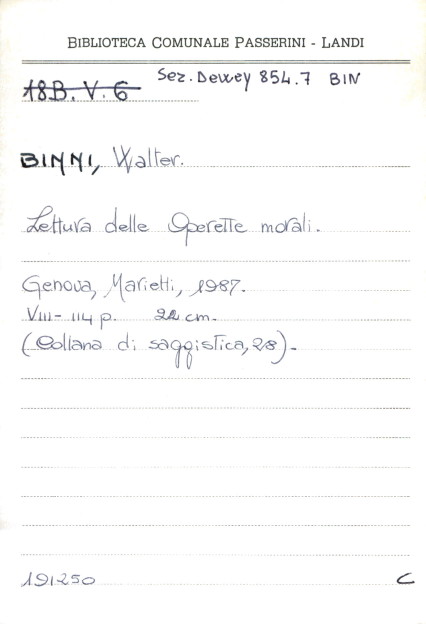 BIBLIOTECA COMUNALE PASSERINI - LANDI
18B. V. 6 Sez. Dewey 854.7 BIN
BINNI, Walter.
Lettura delle Operette morali.
Genova, Marietti, 1987.
VIII- 114 p. 22 cm.
(Collana di saggistica, 28).
191250 C